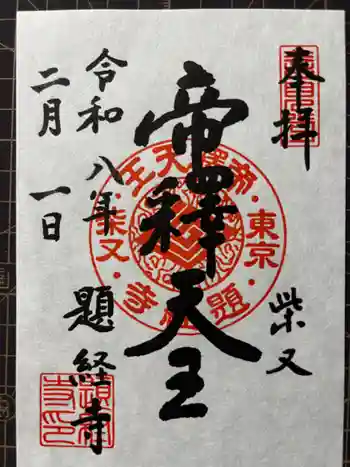 奉拝
柴又
帝釋天王
令和八年
二月一日
題経寺
帝釋天王
東京
柴又
題経寺